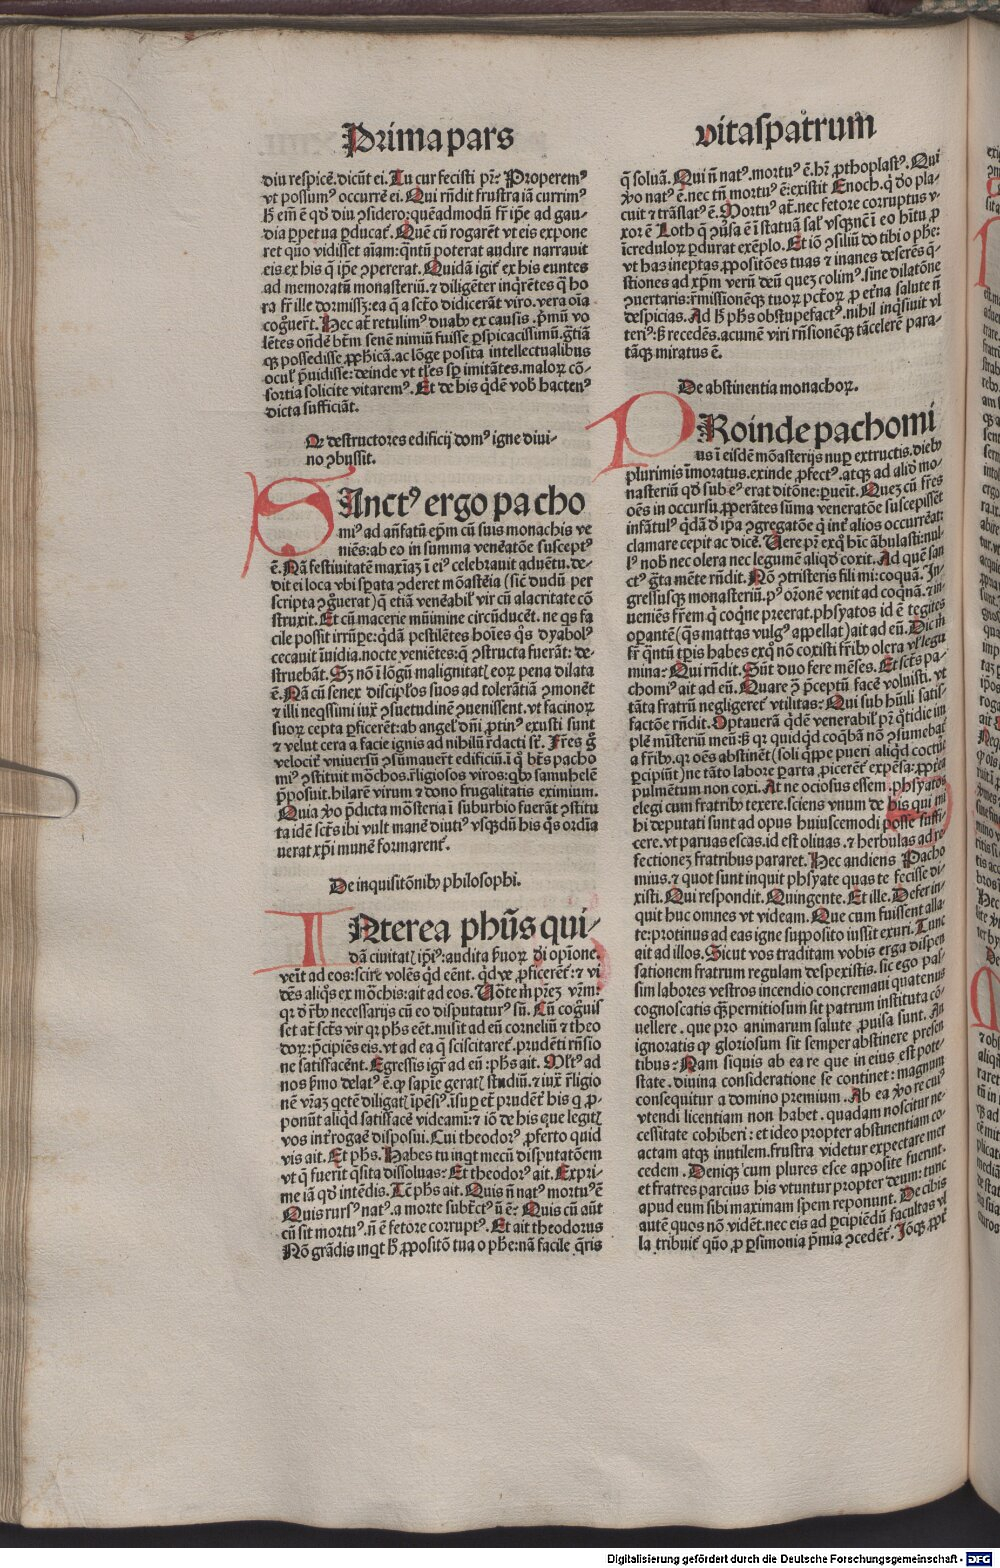 Prima pars
vitaspatrum
diu respicē. dicūt ei. Tu cur fecisti pr̄: Properemꝰ
vt possumꝰ occurrē ei. Qui rn̄dit frustra iā currimꝰ
h̄ em̄ ē qd̄ diu ꝯsidero: quēadmodū fr̄ ip̄e ad gau-
dia ꝑpetua ꝑducat̄. Quē cū rogarēt vt eis expone
ret quo vidisset aīam: q̄ntū poterat audire narrauit
eis ex his q̄ ip̄e ꝯpererat. Quidā igit̄ ex his euntes
ad memoratū monasteriū. ⁊ diligēter inqrētes q̄ ho
ra fr̄ ille dormissꝫ: ea q̄ a scto didicerāt viro. vera oīa
cogͦuer̄t. Hec at̄ retulimꝰ duabꝰ ex causis. pͥmū vo
lētes ondē btm̄ senē nimiū fuisse ꝑspicacissimū. gr̄tiā
qꝫ possedisse ꝓphicā. ac lōge posita intellectualibus
ocul̄ puidisse: deinde vt tles sp imitātes. malorꝫ cō-
sortia solicite vitaremꝰ. Et de his qͥdē vob̄ hactenꝰ
dicta sufficiāt.
Qꝛ destructores edificij domꝰ igne diui-
no ꝯbyssit.
SAnctꝰ ergo pacho
miꝰ ad an̄fatū ep̄m cū suis monachis ve
niēs: ab eo in summa venēatōe susceptꝰ
ē. Nā festiuitatē maxīaꝫ ī eiꝰ celebrauit aduētu. de-
dit ei loca vbi spata ꝯderet mōasteīa (sic̄ dudū per
scripta ꝯgͦuerat) q̄ etiā venēabil̄ vir cū alacritate cō
struxit. Et cū macerie mūnimine circūducēt. ne qͥs fa
cile possit irrūpe: qͥdā pestilētes hoīes qͦs dyabolꝰ
cecauit īuidia. nocte veniētes: q̄ ꝯstructa fuerāt: de-
struebāt. Sꝫ nō ī lōgū malignitatꝭ eorꝫ pena dilata
ē. Nā cū senex discipl̄os suos ad tolerātiā ꝯmonēt
⁊ illi neqssimi iuxͣ ꝯsuetudinē ꝯuenissent. vt facinorꝫ
suorꝫ cepta ꝑficerēt: ab angel̄ dn̄i ꝓtinꝰ exusti sunt
⁊ velut cera a facie ignis ad nihilū rdacti st̄. Fr̄es gͦ
velociꝰ vniuersū ꝯsūmauert edificiū. ī q̄ bt̄s pacho
miꝰ ꝯstituit mōchos. rligiosos viros: qͥbꝰ samuhelē
pposuit. hilarē virum ⁊ dono frugalitatis eximium.
Quia v̄o pdicta mōsteria ī suburbio fuerāt ꝯstitu
ta idē sct̄s ibi vult manē diutiꝰ vsqꝫdū his qͦs ordīa
uerat xp̄i munē formarent̄.
De inquisitōnibꝰ philosophi.
INterea ph̄us qui-
dā ciuitatꝭ ip̄iꝰ: audita ẜuorꝫ di opinōe.
veīt ad eos: scire volēs qͥd eēnt. qd̄ v̄e ꝓficerēt: ⁊ vi
dēs aliqͥs ex mōchis: ait ad eos. Uōtem prēꝫ vrm̄:
qꝛ d̄ rebꝰ necessarijs cū eo disputaturꝰ sū. Cū cogͦuis
set at̄ sct̄s vir qꝛ ph̄s eēt. misit ad eū corneliū ⁊ theo
dorꝫ: pͥcipiēs eis. vt ad ea q̄ sciscitaret̄. prudēti rn̄sio
ne satisfacēnt. Egressis igr̄ ad eū: ph̄s ait. Mltꝰ ad
nos ẜmo delatꝰ ē. ꝙ sapiē geratꝭ studiū. ⁊ iuxͣ rligio
nē vraꝫ qͥetē diligatꝭ ip̄ensiꝰ. īsuꝑ et̄ prudēt̄ his q̄ ꝓ-
ponūt aliqͥd satisfacē videami: ⁊ iō de his que legitꝭ
vos int̄rogaē disposui. Cui theodorꝰ ꝓferto quid
vis ait. Et ph̄s. Habes tu inqt mecū disputatōem
vt q̄ fuerit q̄sita dissoluas: Et theodorꝰ ait. Expri-
me iā qd̄ intēdis. Tc̄ ph̄s ait. Quis n̄ natꝰ mortuꝰ ē
Quis rursꝰ natꝰ. a morte subtctꝰ n̄ ē: Quis cū aūt
cū sit mortuꝰ. n̄ ē fetore corruptꝰ. Et ait theodorus
Nō grādis inqt h̄ ꝓpositō tua o ph̄e: nā facile q̄ris
q̄ soluā. Qui n̄ natꝰ. mortuꝰ ē. hr̄ ꝓthoplastꝰ. Qui
v̄o natꝰ ē. nec tn̄ mortuꝰ ē: existit Enoch. q̄ do pla-
cuit ⁊ trāslatꝰ ē. Mortuꝰ at̄. nec fetore corruptus v-
xor ē Loth q̄ ꝯuersa ē ī statuā sal̄ vsqꝫnc̄ ī eo hītu ꝓ
īcredulorꝫ ꝑdurat exēplo. Et iō ꝯsiliū do tibi o ph̄e:
vt has ineptas ꝓpositōes tuas ⁊ inanes deserēs q̄-
stiones ad xp̄m verū deū quez colimꝰ. sine dilatōne
ꝯuertaris: rmissionēqꝫ tuorꝫ pctōrꝫ ꝓ et̄na salute n̄
despicias. Ad h̄ ph̄s obstupefactꝰ. nihil inqsiuit vl
teriꝰ: ẜ recedēs. acumē viri rn̄sionēqꝫ tācelerē para-
tāqꝫ miratus ē.
De abstinentia monachorꝫ.
PRoinde pachomi
us ī eisdē mōasterijs nuꝑ extructis. diebꝰ
plurimis īmoratus. exinde ꝓfectꝰ. atqꝫ ad alid̄ mo-
nasteriū qd̄ sub eꝰ erat ditōne: ꝑueīt. Queꝫ cū fr̄es
oēs in occursu ꝓperātes sūma veneratōe suscepissēt
infātulꝰ qͥdā d̄ ip̄a ꝯgregatōe q̄ int̄ alios occurrēat:
clamare cepit ac dicē. Uere pr̄ exq̄ hīc ābulasti: nul-
lꝰ nob̄ nec olera nec legumē aliqd̄ coxit. Ad quē san
ctꝰ gr̄ta mēte rn̄dit. Nō ꝯtristeris fili mi: coquā. In-
gressusqꝫ monasteriū. pꝰ orōnē venit ad coqͥnā. ⁊ in-
ueniēs fr̄em q̄ coqͥne preerat. phsyatos id ē tegites
oꝑantē (q̄s mattas vulgꝰ appellat) ait ad eū. Dic m̄
fr̄ qͥntū tp̄is habes exq̄ nō coxisti fr̄ibꝰ olera vl̄ legu
mina: Qui rn̄dit. Sūt duo fere mēses. Et sct̄s pa-
chomiꝰ ait ad eū. Quare ꝯ pceptū facē voluisti. vt
tāta fratrū negligeret̄ vtilitas: Qui sub hūili satis-
factōe rn̄dit. Optauerā qͥdē venerabil̄ pr̄ q̄tidie im
plē mīsteriū meū: ẜ qꝛ quidqͥd coqͥbā nō ꝯsumebat̄
a fr̄ibꝰ. qꝛ oēs abstinēt (soli qͥppe pueri aliqͥd coctūe
ꝑcipiūt) ne tāto labore ꝑarta ꝓicerēt̄ expēsa: ꝓpterea
pulmētum non coxi. At ne ociosus essem. phsyatos
elegi cum fratribꝰ texere. sciens vnum de his qui mi
hi deputati sunt ad opus huiuscemodi posse suffi-
cere. vt paruas escas. id est oliuas. ⁊ herbulas ad re
fectionez fratribus pararet. Hec audiens Pacho
mius. ⁊ quot sunt inquit phsyate quas te fecisse di-
xisti. Qui respondit. Quingente. Et ille. Defer in-
quit huc omnes vt videam. Que cum fuissent alla-
te: protinus ad eas igne supposito iussit exuri. Tunc
ait ad illos. Sicut vos traditam vobis erga dispen
sationem fratrum regulam despexistis. sic ego pas-
sim labores vestros incendio concremaui quatenus
cognoscatis qꝫ perniciosum sit patrum instituta cō-
uellere. que pro animarum salute ꝓuisa sunt. An
ignoratis ꝙ gloriosum sit semper abstinere presen
tibus: Nam siquis ab ea re que in eius est pote-
state. diuina consideratione se continet: magnum
consequitur a domino premium. Ab ea v̄o re cuiꝰ
vtendi licentiam non habet. quadam noscitur ne-
cessitate cohiberi: et ideo propter abstinentiam co-
actam atqꝫ inutilem. frustra videtur expectare mer
cedem. Deniqꝫ cum plures esce apposite fuerint.
et fratres parcius his vtuntur propter deum: tunc
apud eum sibi maximam spem reponunt. De cibis
autē quos nō vidēt. nec eis ad ꝑcipiēdū facultas vl
la tribuit̄ qūo ꝓ ꝑsimonia pͥmia ꝯcedēt̄. Iōqꝫ ꝓpt̄
Digitalisierung gefördert durch die Deutsche Forschungsgemeinschaft - DFG